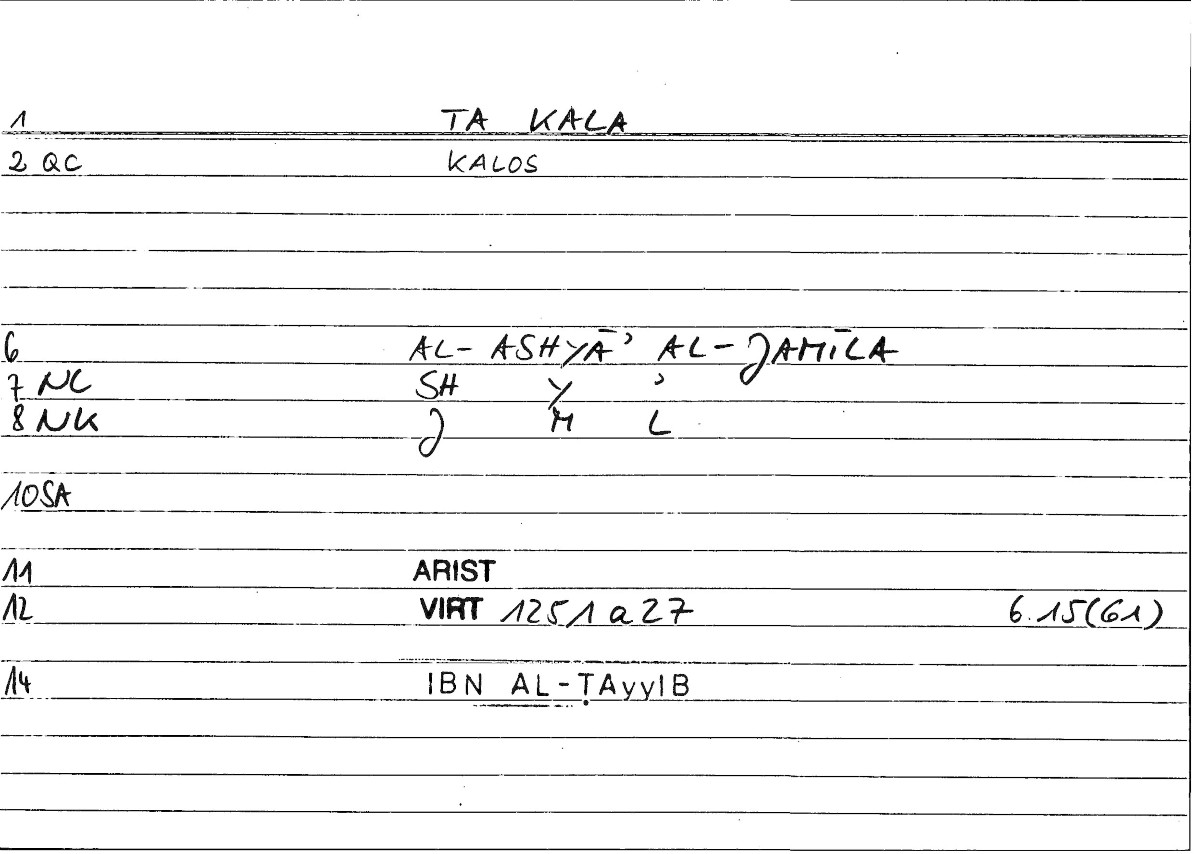 1 TA KALA
2 QC KALOS
6 AL-ASHYĀ’ AL-JAMĪLA
7 NC SH Y ’
8 NK J M L
10SA
11 ARIST
12 VIRT 1251a27 6.15(61)
14 IBN AL-ṬAyyIB